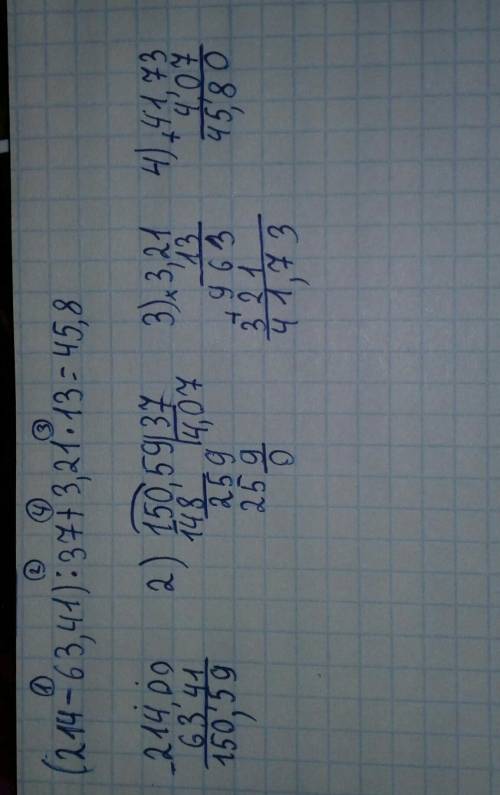 (214-63,41):37+3,21·13=45,8
① ② ④ ③
-214,00
63,41
150,59
2) 150,59|37
148 4,07
259
259
0
3) ×3,21
13
+963
321
41,73
4) +41,73
4,07
45,80